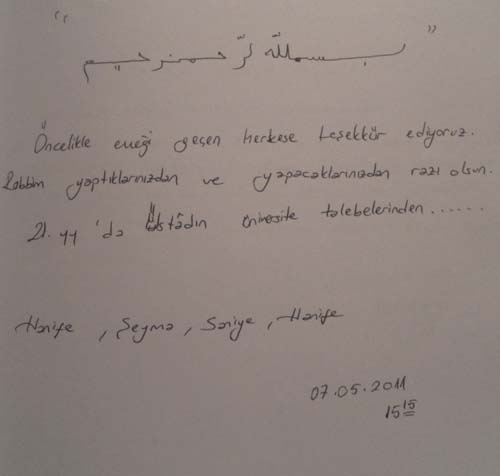 " بسم الله لرّحمنرحيم "
Öncelikle emeği geçen herkese teşekkür ediyoruz.
Rabbim yaptıklarınızdan ve yapacaklarınızdan razı olsun.
21. yy 'da Üstâdın üniversite talebelerinden......
Hanife , Şeyma , Saniye , Hanife
07.05.2011
15 15